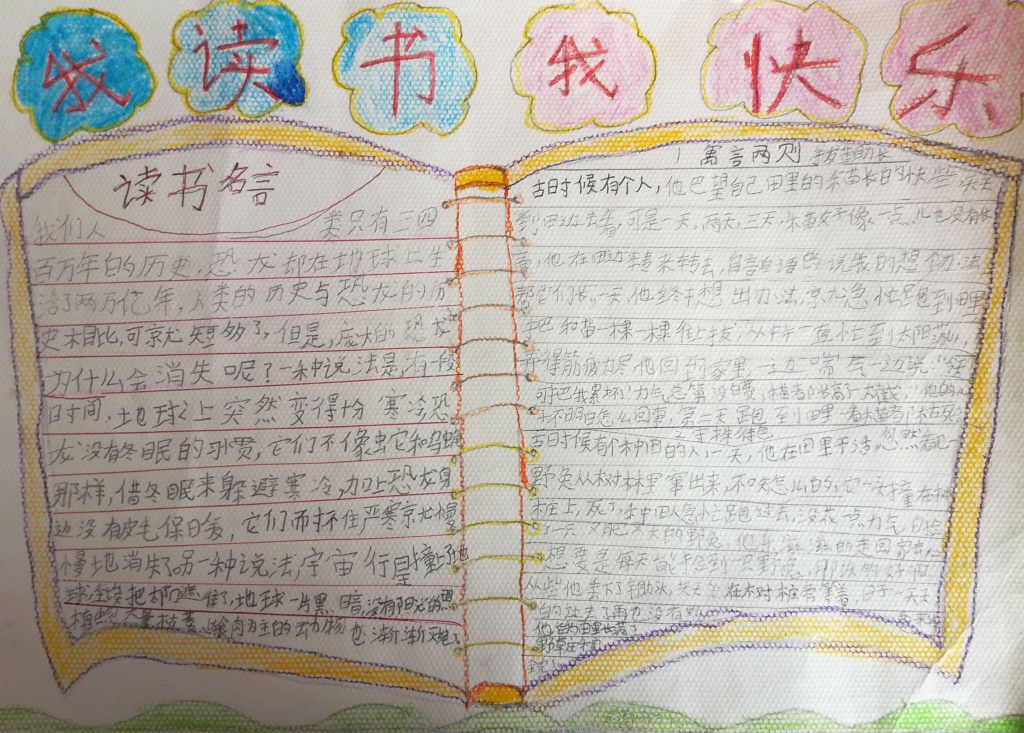 我读书我快乐
读书名言
我们人类只有三四
百万年的历史,恐龙却在地球上生
活了两万亿年,人类的历史与恐龙的历
史相比,可京尤短多了,但是,庞大的恐龙
为什么会消失呢?一种说法是,有一段
日时间,地球上突然变得十分寒冷恐
龙没有冬眠的习惯,它们不像虫它和乌蛇
那样,借冬眠来躲避寒冷,加上恐龙身
边没有皮毛保日爰,它们而才不住严寒京尤慢
慢地消失了另一种说法,宇宙行星撞
球,把都住了,地球一片黑暗,没有阳光的照
植物大量枯萎,食肉为主的动物也渐渐灭绝了
1 寓言两则 拔苗助长
古日寸候有个人,他巴望自己田里的禾苗长日勺快些,天天
到田边去看,可是一天,两天,三天,禾苗好像一点儿也没有长
高,他在田边转来转去,自言自语的说我的想个办法
帮它们长。一天,他终于想出办法,京尤急忙跑到田里
把和苗一棵一棵往上拔,从中午一直忙到太阳落山,
弄得筋疲力尽,他回到家里,一边喘气一边说:
可巴我累坏了力气总算没白费,禾苗都长高了大截,他的儿
才不明白怎么回事,第二天跑到田里一看禾苗都枯死
守株待兔
古日寸候有个种田的人,一天,他在田里干活,忽然看见一
野兔从树林里窜出来,不知怎么的,它一头撞在树
桩上,死了,种田人急忙跑过去,没花一点力气,白捡
了一只又肥又大的野兔,他乐滋滋的走回家去
想要是每天能捡到一只野兔,那该多好啊
从此他丢下了锄头,天天在树桩旁等着,日子一天天
的过去了再也没有
他的田里长满
野草庄稼
全完